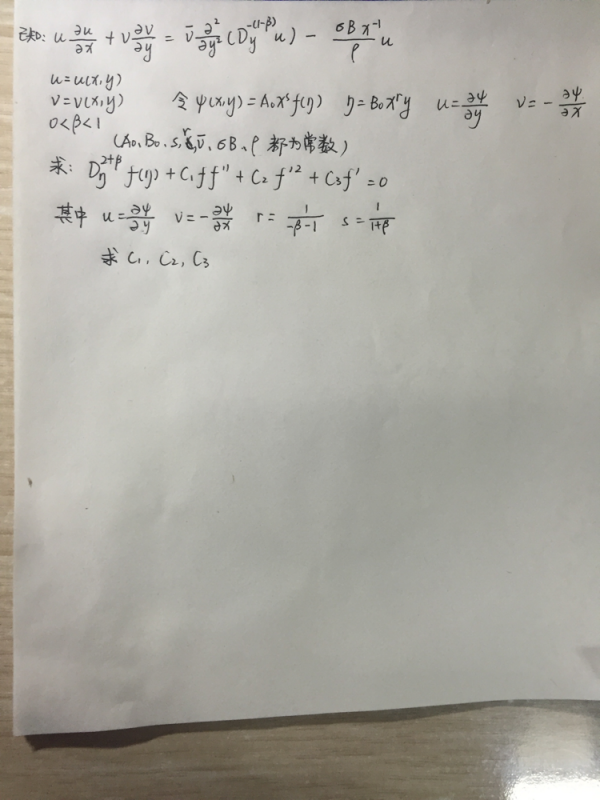 已知: u ∂u/∂x + v ∂v/∂y = ν̄ ∂²/∂y² (D_y^{-(1-β)} u) - σB x^{-1}/ρ u
u = u(x,y)
v = v(x,y) 令 ψ(x,y) = A₀x^s f(η) η = B₀x^r y u = ∂ψ/∂y v = - ∂ψ/∂x
0<β<1
(A₀、B₀、s、r、ν̄、σB、ρ 都为常数)
求: D_η^{2+β} f(η) + C₁ff'' + C₂f'² + C₃f' = 0
其中 u = ∂ψ/∂y v = - ∂ψ/∂x r = 1/(-β-1) s = 1/(1+β)
求 C₁、C₂、C₃